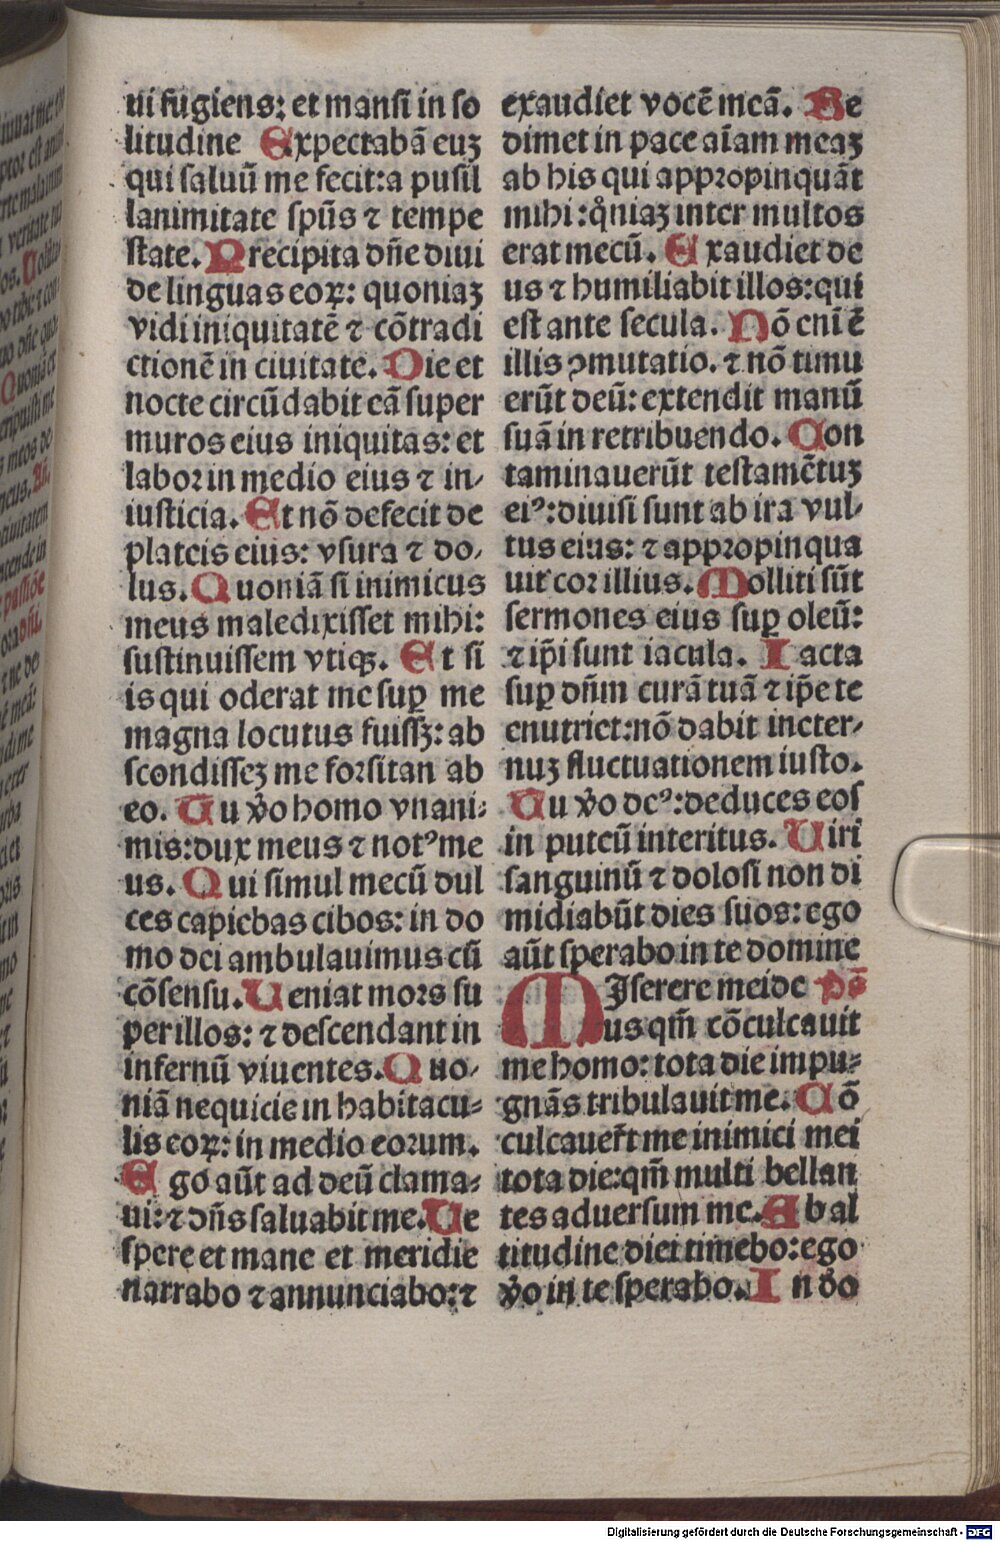 ui fugiens: et mansi in so
litudine Expectabā euꝫ
qui saluū me fecit: a pusil
lanimitate spūs ⁊ tempe
state. Precipita dn̄e diui
de linguas eoꝝ: quoniaꝫ
vidi iniquitatē ⁊ cōtradi
ctionē in ciuitate. Die et
nocte circūdabit eā super
muros eius iniquitas: et
labor in medio eius ⁊ in-
iusticia. Et nō defecit de
plateis eius: vsura ⁊ do-
lus. Quoniā si inimicus
meus maledixisset mihi:
sustinuissem vtiqꝫ. Et si
is qui oderat me suꝑ me
magna locutus fuissꝫ: ab
scondisseꝫ me forsitan ab
eo. Tu v̊o homo vnani-
mis: dux meus ⁊ notꝰ me
us. Qui simul mecū dul
ces capiebas cibos: in do
mo dei ambulauimus cū
cōsensu. Ueniat mors su
per illos: ⁊ descendant in
infernū viuentes. Quo-
niā nequicie in habitacu-
lis eoꝝ: in medio eorum.
Ego aūt ad deū clama-
ui: ⁊ dn̄s saluabit me. Ue
spere et mane et meridie
narrabo ⁊ annunciabo: ⁊
exaudiet vocē meā. Re
dimet in pace aīam meaꝫ
ab his qui appropinquāt
mihi: qm̊niaꝫ inter multos
erat mecū. Exaudiet de
us ⁊ humiliabit illos: qui
est ante secula. Nō eni ē
illis ꝯmutatio. ⁊ nō timu
erūt deū: extendit manū
suā in retribuendo. Con
taminauerūt testamētuꝫ
eiꝰ: diuisi sunt ab ira vul-
tus eius: ⁊ appropinqua
uit cor illius. Molliti sūt
sermones eius suꝑ oleū:
⁊ ip̄i sunt iacula. Iacta
suꝑ dn̄m curā tuā ⁊ ip̄e te
enutriet: nō dabit ineter-
nuꝫ fluctuationem iusto.
Tu v̊o deꝰ: deduces eos
in puteū interitus. Uiri
sanguinū ⁊ dolosi non di
midiabūt dies suos: ego
aūt sperabo in te domine
MIserere mei de Ps̄
us qm̄ cōculcauit
me homo: tota die impu-
gnās tribulauit me. Cō
culcauer̄t me inimici mei
tota die: qm̄ multi bellan
tes aduersum me. Ab al
titudine diei timebo: ego
v̊o in te sperabo. In deo
Digitalisierung gefördert durch die Deutsche Forschungsgemeinschaft - DFG